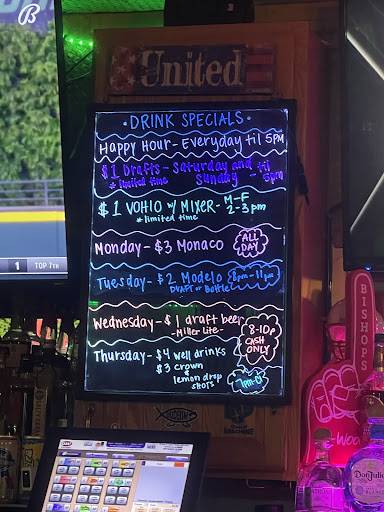 B
United
• DRINK SPECIALS •
Happy Hour - Everyday til 5pm
$1 Drafts - Saturday and til
* limited time Sunday - 6pm
$1 VOHIO w/ MIXER - M-F
* limited time 2-3pm
Monday - $3 Monaco ALL
DAY
Tuesday - $2 Modelo 8pm-11pm
DRAFT or Bottle
Wednesday - $1 draft beer
- Miller Lite - 8-10p
CASH
ONLY
Thursday - $4 well drinks
$3 crown
&
lemon drop
SHOTS
1 TOP 7TH
BISHOPS
Woo
DonJulio